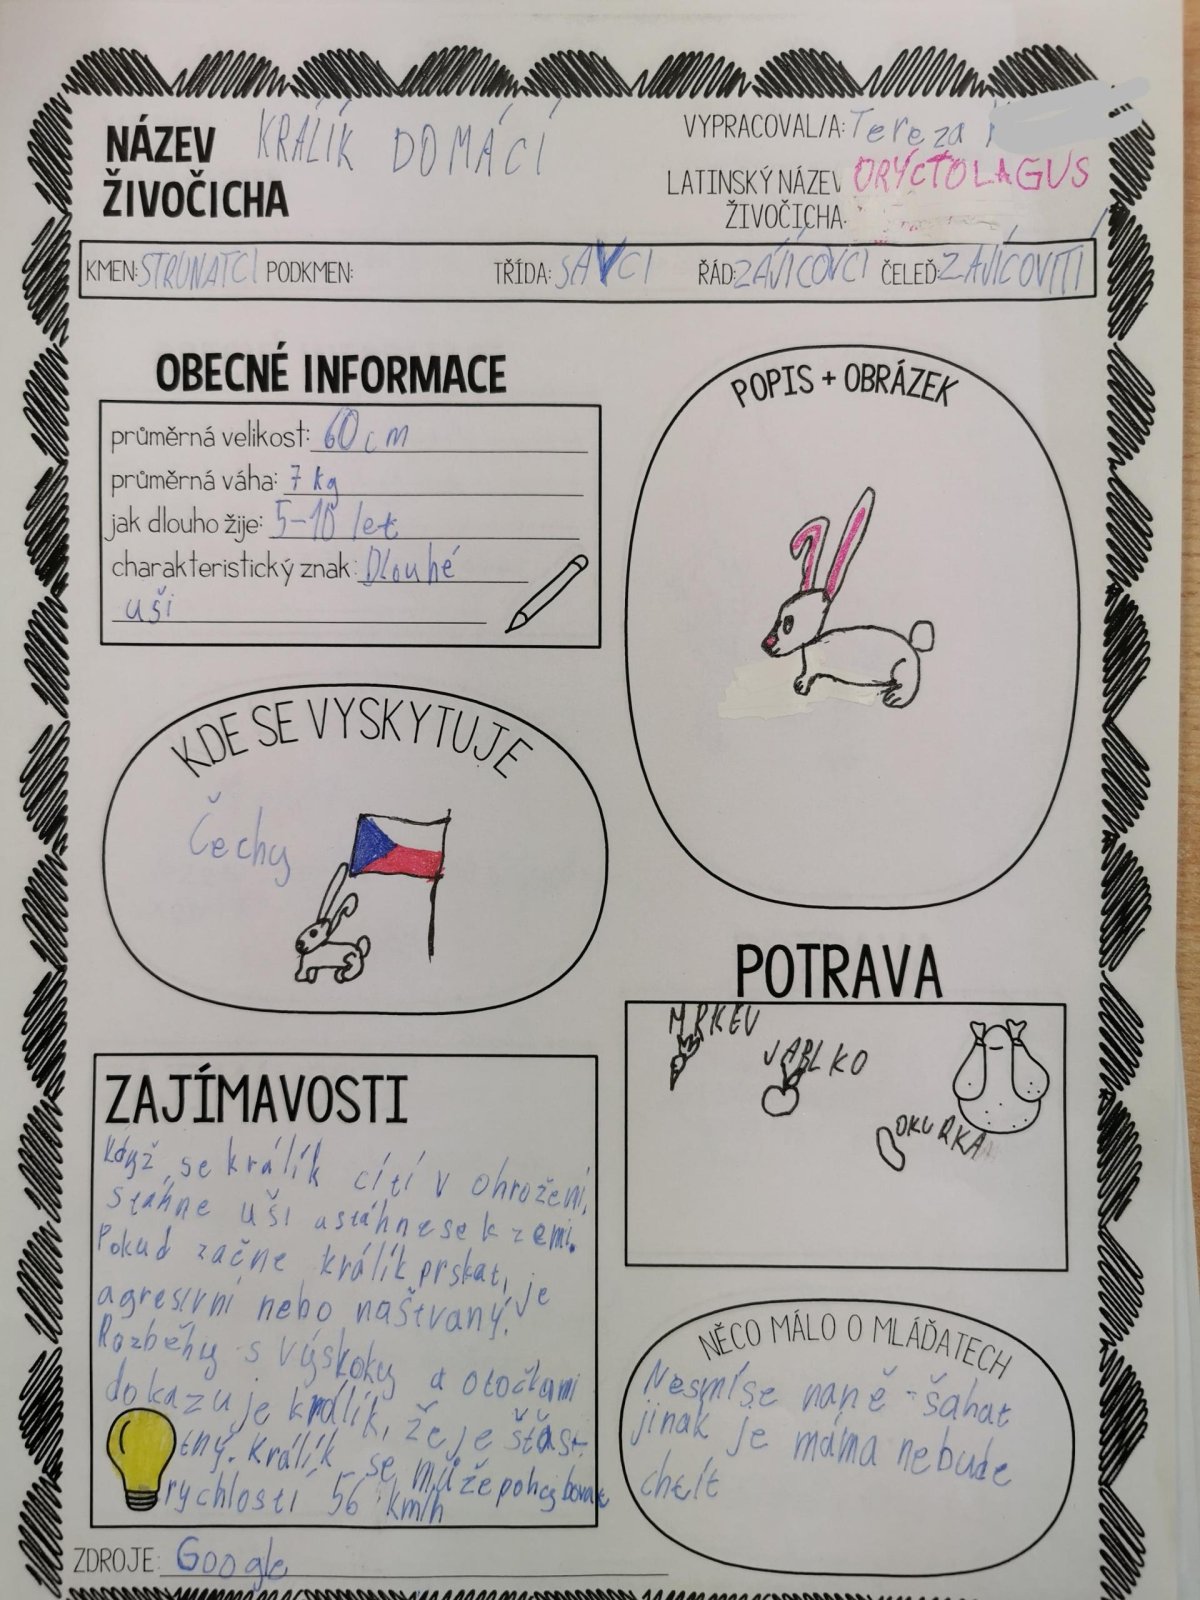 NÁZEV ŽIVOČICHA KRÁLÍK DOMÁCÍ
VYPRACOVAL/A: Tereza
LATINSKÝ NÁZEV ŽIVOČICHA: ORYCTOLAGUS
KMEN: STRUNATCI PODKMEN: TŘÍDA: SAVCI ŘÁD: ZAJÍCOVCI ČELEĎ: ZAJÍCOVITÍ
OBECNÉ INFORMACE
průměrná velikost: 60 cm
průměrná váha: 7 kg
jak dlouho žije: 5-10 let
charakteristický znak: Dlouhé
uši
POPIS + OBRÁZEK
KDE SE VYSKYTUJE
Čechy
POTRAVA
MRKEV
JABLKO
OKURKA
ZAJÍMAVOSTI
Když se králík cítí v ohrožení,
stáhne uši a stáhne se k zemi.
Pokud začne králík prskat, je
agresivní nebo naštvaný.
Rozběhy s výskoky a otočkami
dokazuje králík, že je šťast-
tný. Králík se může pohybovat
rychlostí 56 km/h
NĚCO MÁLO O MLÁĎATECH
Nesmí se na ně šahat
jinak je máma nebude
chtít
ZDROJE: Google